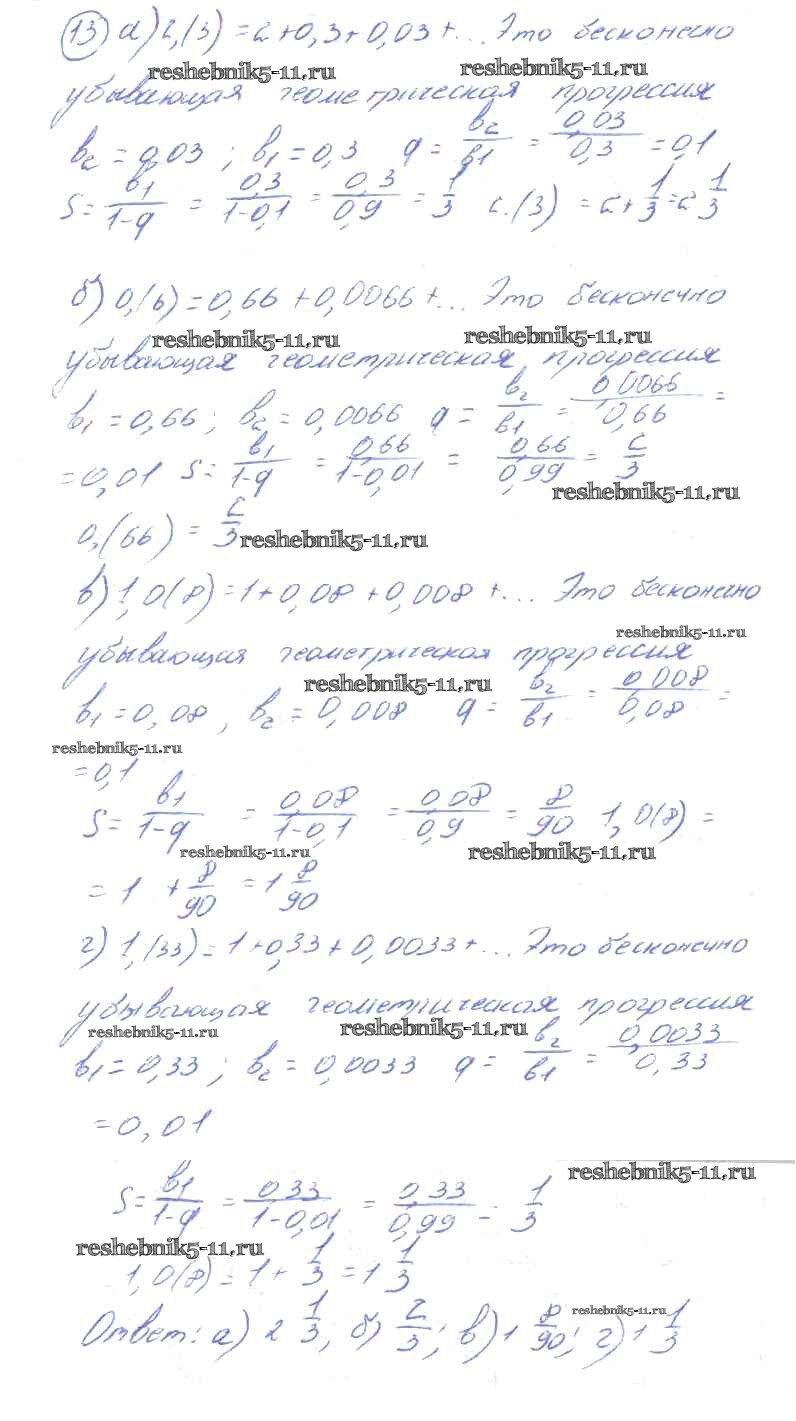 13) а) 2,(3) = 2+0,3+0,03+... Это бесконечно
reshebnik5-11.ru reshebnik5-11.ru
убывающая геометрическая прогрессия
b2 = 0,03 ; b1 = 0,3 q = b2/b1 = 0,03/0,3 = 0,1
S = b1/(1-q) = 0,3/(1-0,1) = 0,3/0,9 = 1/3 2.(3) = 2+1/3 = 2 1/3
б) 0,(6) = 0,66 + 0,0066 + ... Это бесконечно
reshebnik5-11.ru reshebnik5-11.ru
убывающая геометрическая прогрессия
b1 = 0,66 ; b2 = 0,0066 q = b2/b1 = 0,0066/0,66 =
= 0,01 S = b1/(1-q) = 0,66/(1-0,01) = 0,66/0,99 = 2/3
reshebnik5-11.ru
0,(66) = 2/3 reshebnik5-11.ru
в) 1,0(8) = 1+0,08+0,008 +... Это бесконечно
reshebnik5-11.ru
убывающая геометрическая прогрессия
reshebnik5-11.ru
b1 = 0,08 , b2 = 0,008 q = b2/b1 = 0,008/0,08 =
reshebnik5-11.ru
= 0,1
S = b1/(1-q) = 0,08/(1-0,1) = 0,08/0,9 = 8/90 1,0(8) =
reshebnik5-11.ru reshebnik5-11.ru
= 1 + 8/90 = 1 8/90
г) 1,(33) = 1+0,33+0,0033+... Это бесконечно
убывающая геометрическая прогрессия
reshebnik5-11.ru reshebnik5-11.ru
b1 = 0,33 ; b2 = 0,0033 q = b2/b1 = 0,0033/0,33
= 0,01
reshebnik5-11.ru
S = b1/(1-q) = 0,33/(1-0,01) = 0,33/0,99 = 1/3
reshebnik5-11.ru
1,0(8) = 1 + 1/3 = 1 1/3
reshebnik5-11.ru
Ответ: а) 2 1/3; б) 2/3; в) 1 8/90; г) 1 1/3